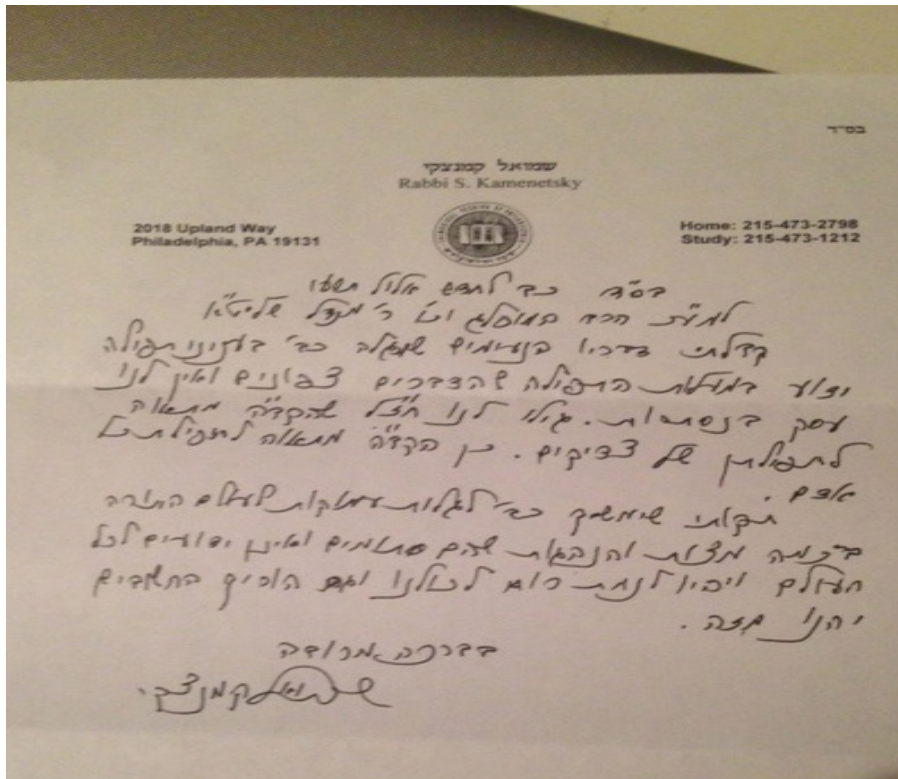 בס״ד
שמואל קמנצקי
Rabbi S. Kamenetsky
2018 Upland Way
Philadelphia, PA 19131
Home: 215-473-2798
Study: 215-473-1212
בס״ד כב לחדש אלול תשעו
למע״כ הרב המופלג וכו׳ ר׳ מנדל שליט״א
קבלתי דבריו הנעימים שמגלה כב׳ בעניני תפילה
ידוע במעלות התפילה שהדברים צפונים ואין לנו
עסק בנסתרות. גילו לנו חז״ל שהקב״ה מתאוה
לתפילתן של צדיקים. כן הקב״ה מתאוה לתפילת כל
אדם.
תקותי שימשיך כב׳ לגלות עמקות לעולם התורה
בכמה מצות והנהגות שהם סתומים ואינן ידועים לכל
העולם ויהיו לנחת רוח לכולנו וגם הוריו החשובים
יהנו מזה.
בברכה מרובה
שמואל קמנצקי